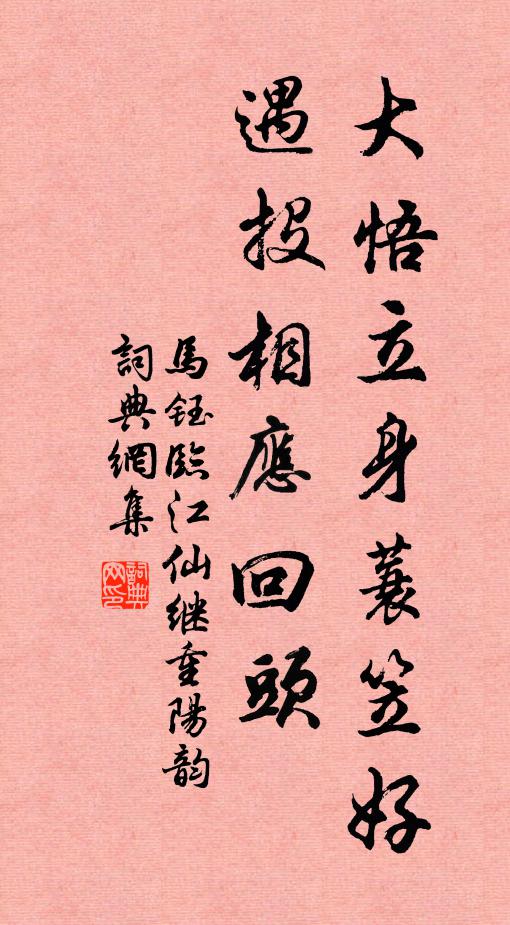 大悟立身蓑笠好
遇投相應回頭
馬鈺臨江仙继重陽韵
詞典網集
詞典网印